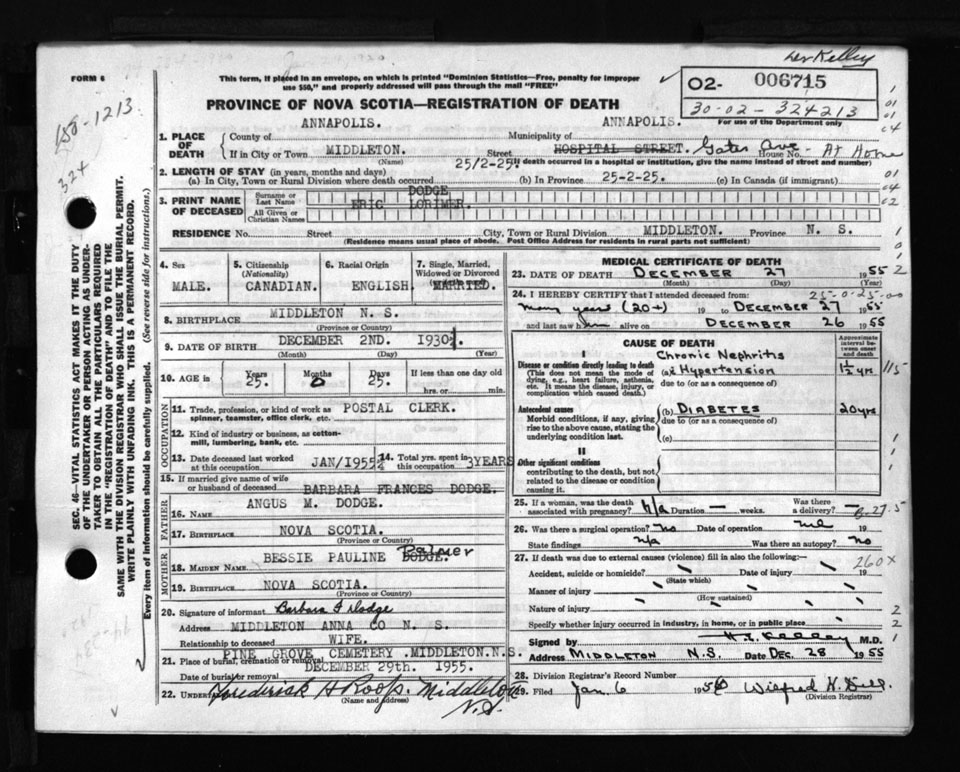 Dr Kelley
FORM 6
This form, if placed in an envelope, on which is printed "Dominion Statistics—Free, penalty for improper
use $50," and properly addressed will pass through the mail "FREE"
02- 006715
30-02-324213
For use of the Department only
PROVINCE OF NOVA SCOTIA—REGISTRATION OF DEATH
150-1213
324
SEC. 46—VITAL STATISTICS ACT MAKES IT THE DUTY
OF THE UNDERTAKER OR PERSON ACTING AS UNDER-
TAKER TO OBTAIN ALL THE PARTICULARS REQUIRED
IN THE "REGISTRATION OF DEATH" AND TO FILE THE
SAME WITH THE DIVISION REGISTRAR WHO SHALL ISSUE THE BURIAL PERMIT.
WRITE PLAINLY WITH UNFADING INK. THIS IS A PERMANENT RECORD.
Every item of information should be carefully supplied. (See reverse side for instructions.)
1. PLACE OF DEATH
County of ANNAPOLIS. Municipality of ANNAPOLIS.
If in City or Town MIDDLETON. Street HOSPITAL STREET. Gates Ave House No. At Home
(Name) (If death occurred in a hospital or institution, give the name instead of street and number)
2. LENGTH OF STAY (in years, months and days)
(a) In City, Town or Rural Division where death occurred 25/2-25. (b) In Province 25-2-25. (c) In Canada (if immigrant)
3. PRINT NAME OF DECEASED
Surname or Last Name DODGE
All Given or Christian Names ERIC LORIMER.
RESIDENCE No. Street City, Town or Rural Division MIDDLETON. Province N. S.
(Residence means usual place of abode. Post Office Address for residents in rural parts not sufficient)
4. Sex MALE.
5. Citizenship (Nationality) CANADIAN.
6. Racial Origin ENGLISH.
7. Single, Married, Widowed or Divorced MARRIED.
8. BIRTHPLACE MIDDLETON N. S.
(Province or Country)
9. DATE OF BIRTH DECEMBER 2ND. 1930.
(Month) (Day) (Year)
10. AGE in Years 25. Months 0 Days 25. If less than one day old
hrs. or min.
OCCUPATION
11. Trade, profession, or kind of work as spinner, teamster, office clerk, etc. POSTAL CLERK.
12. Kind of industry or business, as cotton-mill, lumbering, bank, etc.
13. Date deceased last worked at this occupation JAN/1955
14. Total yrs. spent in this occupation 3YEARS
15. If married give name of wife or husband of deceased BARBARA FRANCES DODGE.
FATHER
16. NAME ANGUS M. DODGE.
17. BIRTHPLACE NOVA SCOTIA.
(Province or Country)
MOTHER
18. MAIDEN NAME BESSIE PAULINE DODGE. Palmer
19. BIRTHPLACE NOVA SCOTIA.
(Province or Country)
20. Signature of informant Barbara F Dodge
Address MIDDLETON ANNA CO N. S.
Relationship to deceased WIFE.
21. Place of burial, cremation or removal PINE GROVE CEMETERY .MIDDLETON.N.S.
Date of burial or removal DECEMBER 29th. 1955.
22. UNDERTAKER Frederick H Roop. Middleton
(Name and address) N.S.
MEDICAL CERTIFICATE OF DEATH
23. DATE OF DEATH DECEMBER 27 1955
(Month) (Day) (Year)
24. I HEREBY CERTIFY that I attended deceased from: 25-0-25-00
many years (20+) 19 to DECEMBER 27 1955
and last saw him alive on DECEMBER 26 1955
CAUSE OF DEATH
Approximate interval between onset and death
I
Disease or condition directly leading to death
(This does not mean the mode of dying, e.g., heart failure, asthenia, etc. It means the disease, injury, or complication which caused death.)
Chronic Nephritis
(a) Hypertension 1½ yrs.
due to (or as a consequence of)
Antecedent causes
Morbid conditions, if any, giving rise to the above cause, stating the underlying condition last.
(b) DIABETES 20 yrs
due to (or as a consequence of)
(c)
II
Other significant conditions
contributing to the death, but not related to the disease or condition causing it.
25. If a woman, was the death associated with pregnancy? n/a Duration — weeks. Was there a delivery? —
26. Was there a surgical operation? no Date of operation nil 19
State findings n/a Was there an autopsy? no
27. If death was due to external causes (violence) fill in also the following:—
260X
Accident, suicide or homicide? Date of injury 19
(State which)
Manner of injury
(How sustained)
Nature of injury
Specify whether injury occurred in industry, in home, or in public place
Signed by H.E. Kelley M.D.
Address MIDDLETON N.S. Date DEC. 28 1955
28. Division Registrar's Record Number
29. Filed Jan. 6 1956
(Division Registrar)